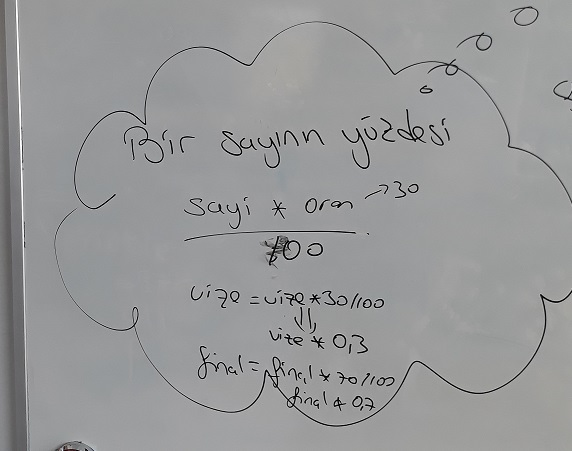 Bir sayının yüzdesi
sayi * oran → 30
100
vize = vize * 30/100
vize * 0,3
final = final * 70/100
final * 0,7